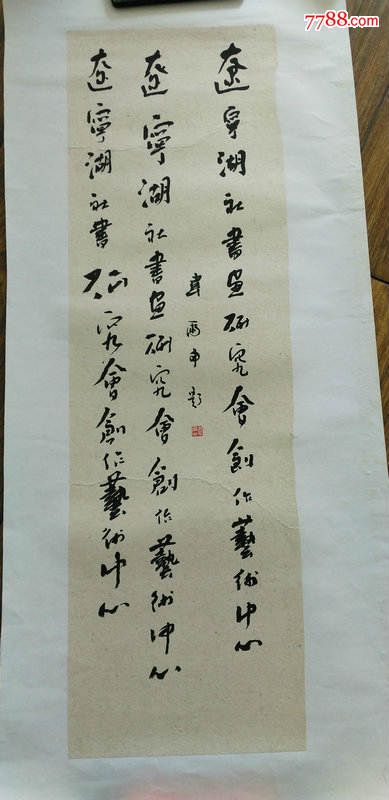 7788.com
遼宁湖社書画研究會創作藝術中心
韋爾申题
遼寧湖社書画研究會創作藝術中心
遼寧湖社書研究會創作藝術中心